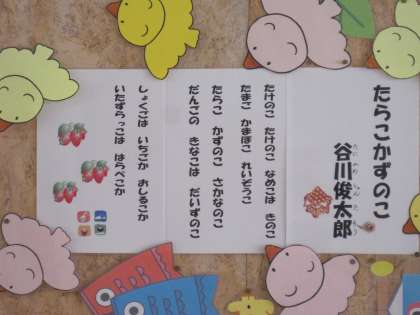 たらこかずのこ
たにかわしゅんたろう
谷川俊太郎
たけのこ たけのこ なめこは きのこ
たまご かまぼこ れいぞうこ
たらこ かずのこ さかなのこ
だんごの きなこは だいずのこ
しょくごは いちごか おしるこか
いたずらっこは はらぺこか